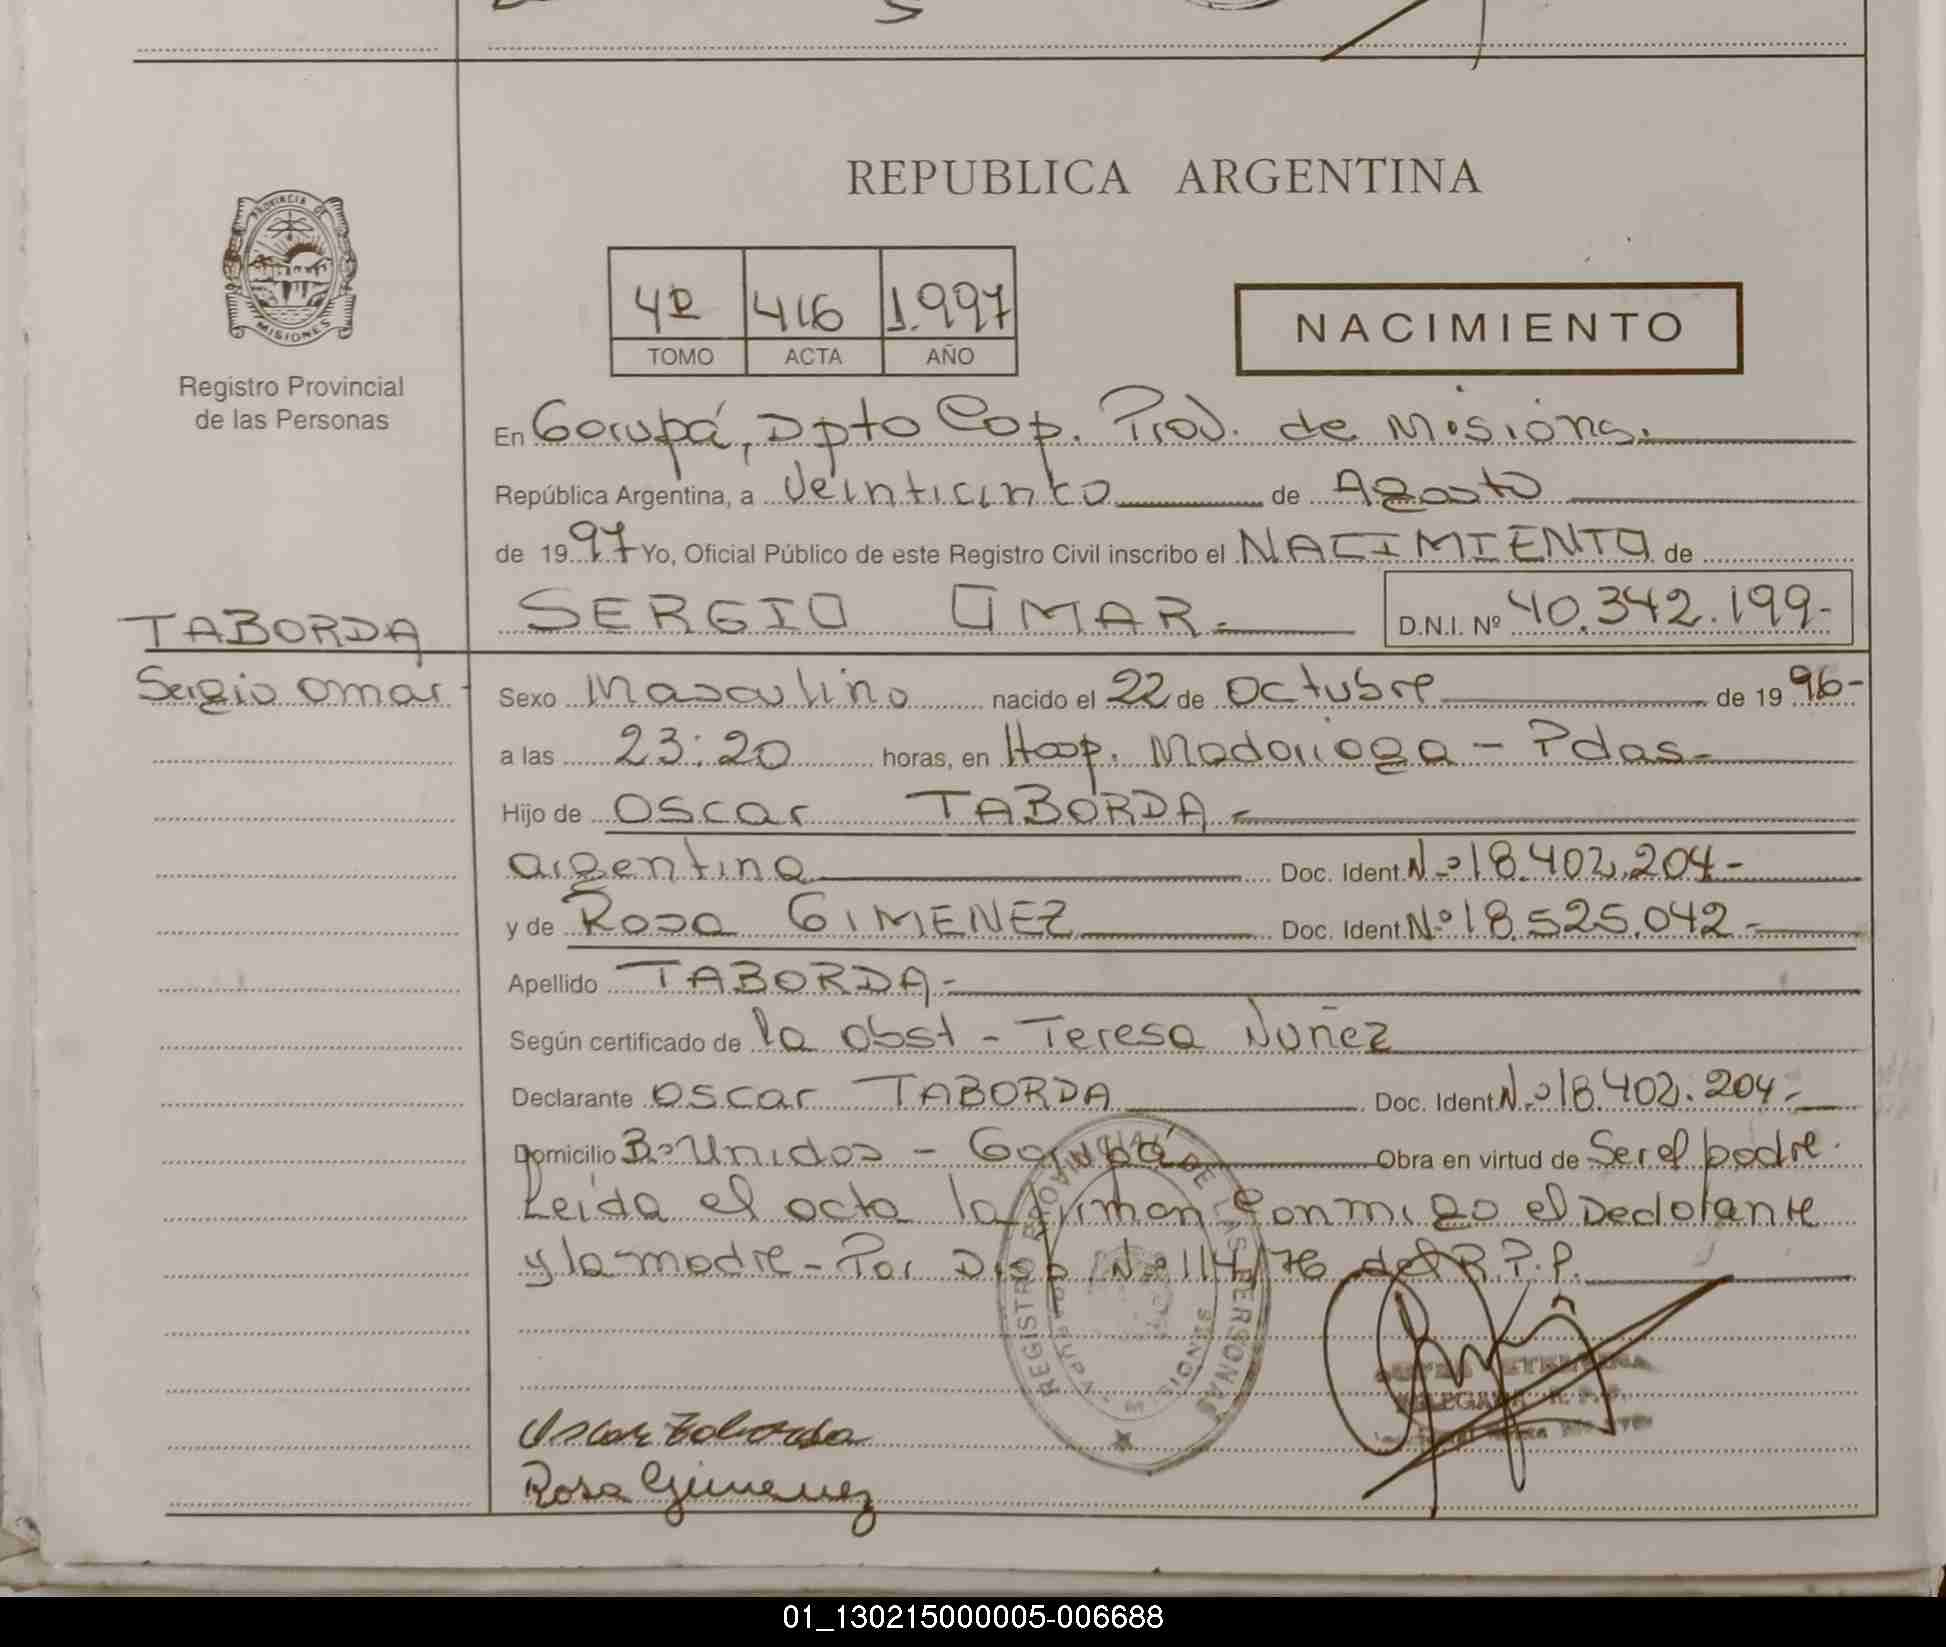 REPUBLICA ARGENTINA
PROVINCIA DE
MISIONES
Registro Provincial
de las Personas
4º 416 1.997
TOMO ACTA AÑO
NACIMIENTO
En Garupá, Dpto Cap. Prov. de Misiones.
República Argentina, a veinticinco de Agosto
de 1997 Yo, Oficial Público de este Registro Civil inscribo el NACIMIENTO de
SERGIO OMAR.- D.N.I. Nº 40.342.199-
TABORDA
Sergio Omar
Sexo Masculino nacido el 22 de Octubre de 1996-
a las 23:20 horas, en Hosp. Madariaga - Pdas-
Hijo de Oscar TABORDA-
argentina Doc. Ident Nº 18.402.204-
y de Rosa GIMENEZ Doc. Ident Nº 18.525.042-
Apellido TABORDA-
Según certificado de la Obst - Teresa Nuñez
Declarante Oscar TABORDA Doc. Ident Nº 18.402.204-
Domicilio Bº Unidos - Garupá Obra en virtud de Ser el padre.
Leida el acta la firman conmigo el Declarante
y la madre - Por Disp. Nº 114/76 del R.P.P.
REGISTRO PROVINCIAL DE LAS PERSONAS
MISIONES
Oscar Taborda
Rosa Gimenez
01_130215000005-006688